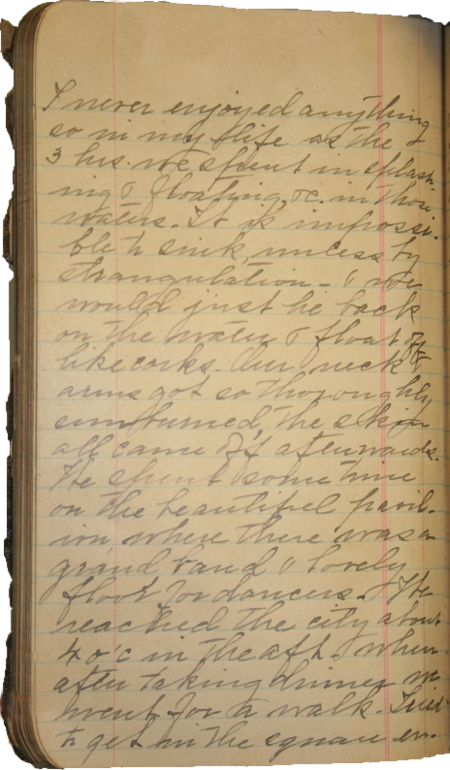 I never enjoyed anything
so in my life as the 2
3 hrs. we spent in splash-
ing & floating, &c. in those
waters. It is impossi-
ble to sink, unless by
strangulation - & we
would just lie back
on the water & float off
like corks. Our neck &
arms got so thoroughly
sunburned, the skin
all came off afterwards.
We spent some time
on the beautiful pavil-
ion where there was a
grand band & lovely
floor for dancers. We
reached the city about
4 o'c in the aft. & when
after taking dinner we
went for a walk. Tried
to get in the square en-